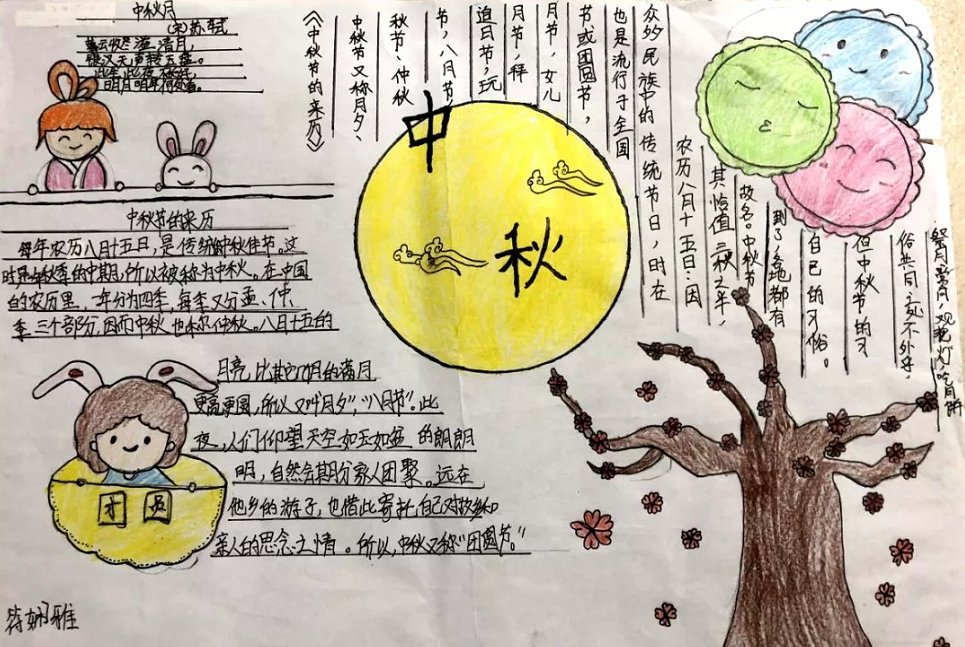 中秋月
(宋)苏轼
暮云收尽溢清月,
银汉无声转玉盘。
此生此夜
明月明年何处看。
中秋节的来历
每年农历八月十五日,是传统的中秋佳节。这
时是年秋季的中期,所以被称为中秋。在中国
的农历里,一年分为四季,每季又分孟、仲、
季三个部分,因而中秋也称仲秋。八月十五的
月亮比其它几月的满月
更高更圆,所以又叫“月夕”,“八月节”。此
夜,人们仰望天空如玉如盆的朗朗
明,自然会期分家人团聚。远在
他乡的游子,也借此寄托自己对故乡和
亲人的思念之情。所以,中秋又称“团圆节。”
团 圆
符娴雅
中
秋
《中秋节的来历》
中秋节又称月夕、
秋节、仲秋
节,八月节,
追月节,玩
月节,拜
月节,女儿
节或团圆节,
也是流行于全国
众多民族中的传统节日,时在
农历八月十五日;因
其恰值三秋之年,
故名。中秋节
到了各地都有
自己的习俗。
但中秋节的习
俗共同之处不外乎,
祭月赏月,观花灯,吃月饼